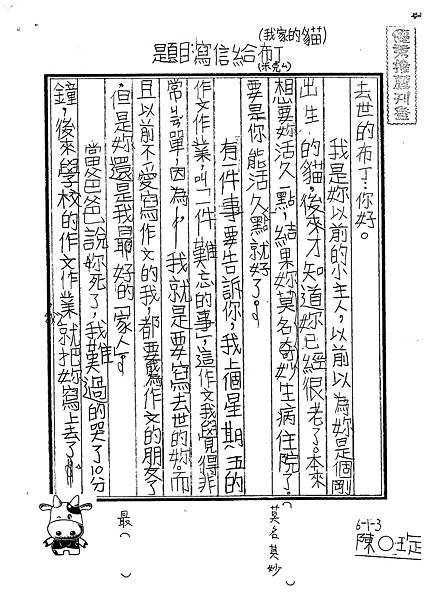 題目：寫信給布丁
(我家的貓)
去世的布丁：妳好。
我是妳以前的小主人，以前以為妳是個剛
出生的貓，後來才知道妳已經很老了。本來
想要妳活久一點，結果妳莫名奇妙生病住院了。
要是你能活久點就好了。
有一件事要告訴你，我上個星期五的
作文作業，叫「一件難忘的事」，這作文我覺得非
常簡單，因為我就是要寫去世的妳。而
且以前不愛寫作文的我，都要為作文的朋友了
但是妳還是我最好的「家人」。
當爸爸說妳死了，我難過的哭了10分
鐘，後來學校的作文作業就把妳寫上去了
優秀推薦刊登
6-1-3
陳○琁
莫名其妙
最（　）